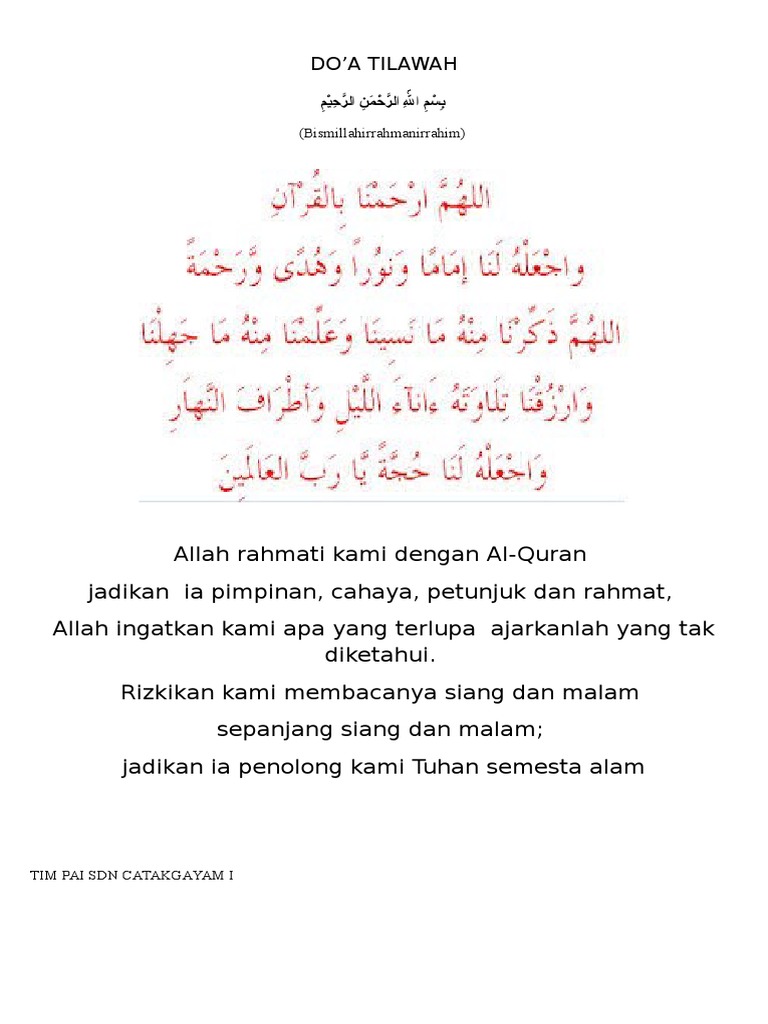 DO’A TILAWAH
بِسْمِ اللهِ الرَّحْمَنِ الرَّحِيْمِ
(Bismillahirrahmanirrahim)
اللهُمَّ ارْحَمْنَا بِالقُرْآنِ
وَاجْعَلْهُ لَنَا إِمَامًا وَنُوْراً وَهُدًى وَّرَحْمَةً
اللهُمَّ ذَكِّرْنَا مِنْهُ مَا نَسِينَا وَعَلِّمْنَا مِنْهُ مَا جَهِلْنَا
وَارْزُقْنَا تِلَاوَتَهُ ءَانَآءَ اللَّيْلِ وَأَطْرَافَ النَّهَارِ
وَاجْعَلْهُ لَنَا حُجَّةً يَّا رَبَّ العَالَمِينَ
Allah rahmati kami dengan Al-Quran
jadikan  ia pimpinan, cahaya, petunjuk dan rahmat,
Allah ingatkan kami apa yang terlupa  ajarkanlah yang tak
diketahui.
Rizkikan kami membacanya siang dan malam
sepanjang siang dan malam;
jadikan ia penolong kami Tuhan semesta alam
TIM PAI SDN CATAKGAYAM I